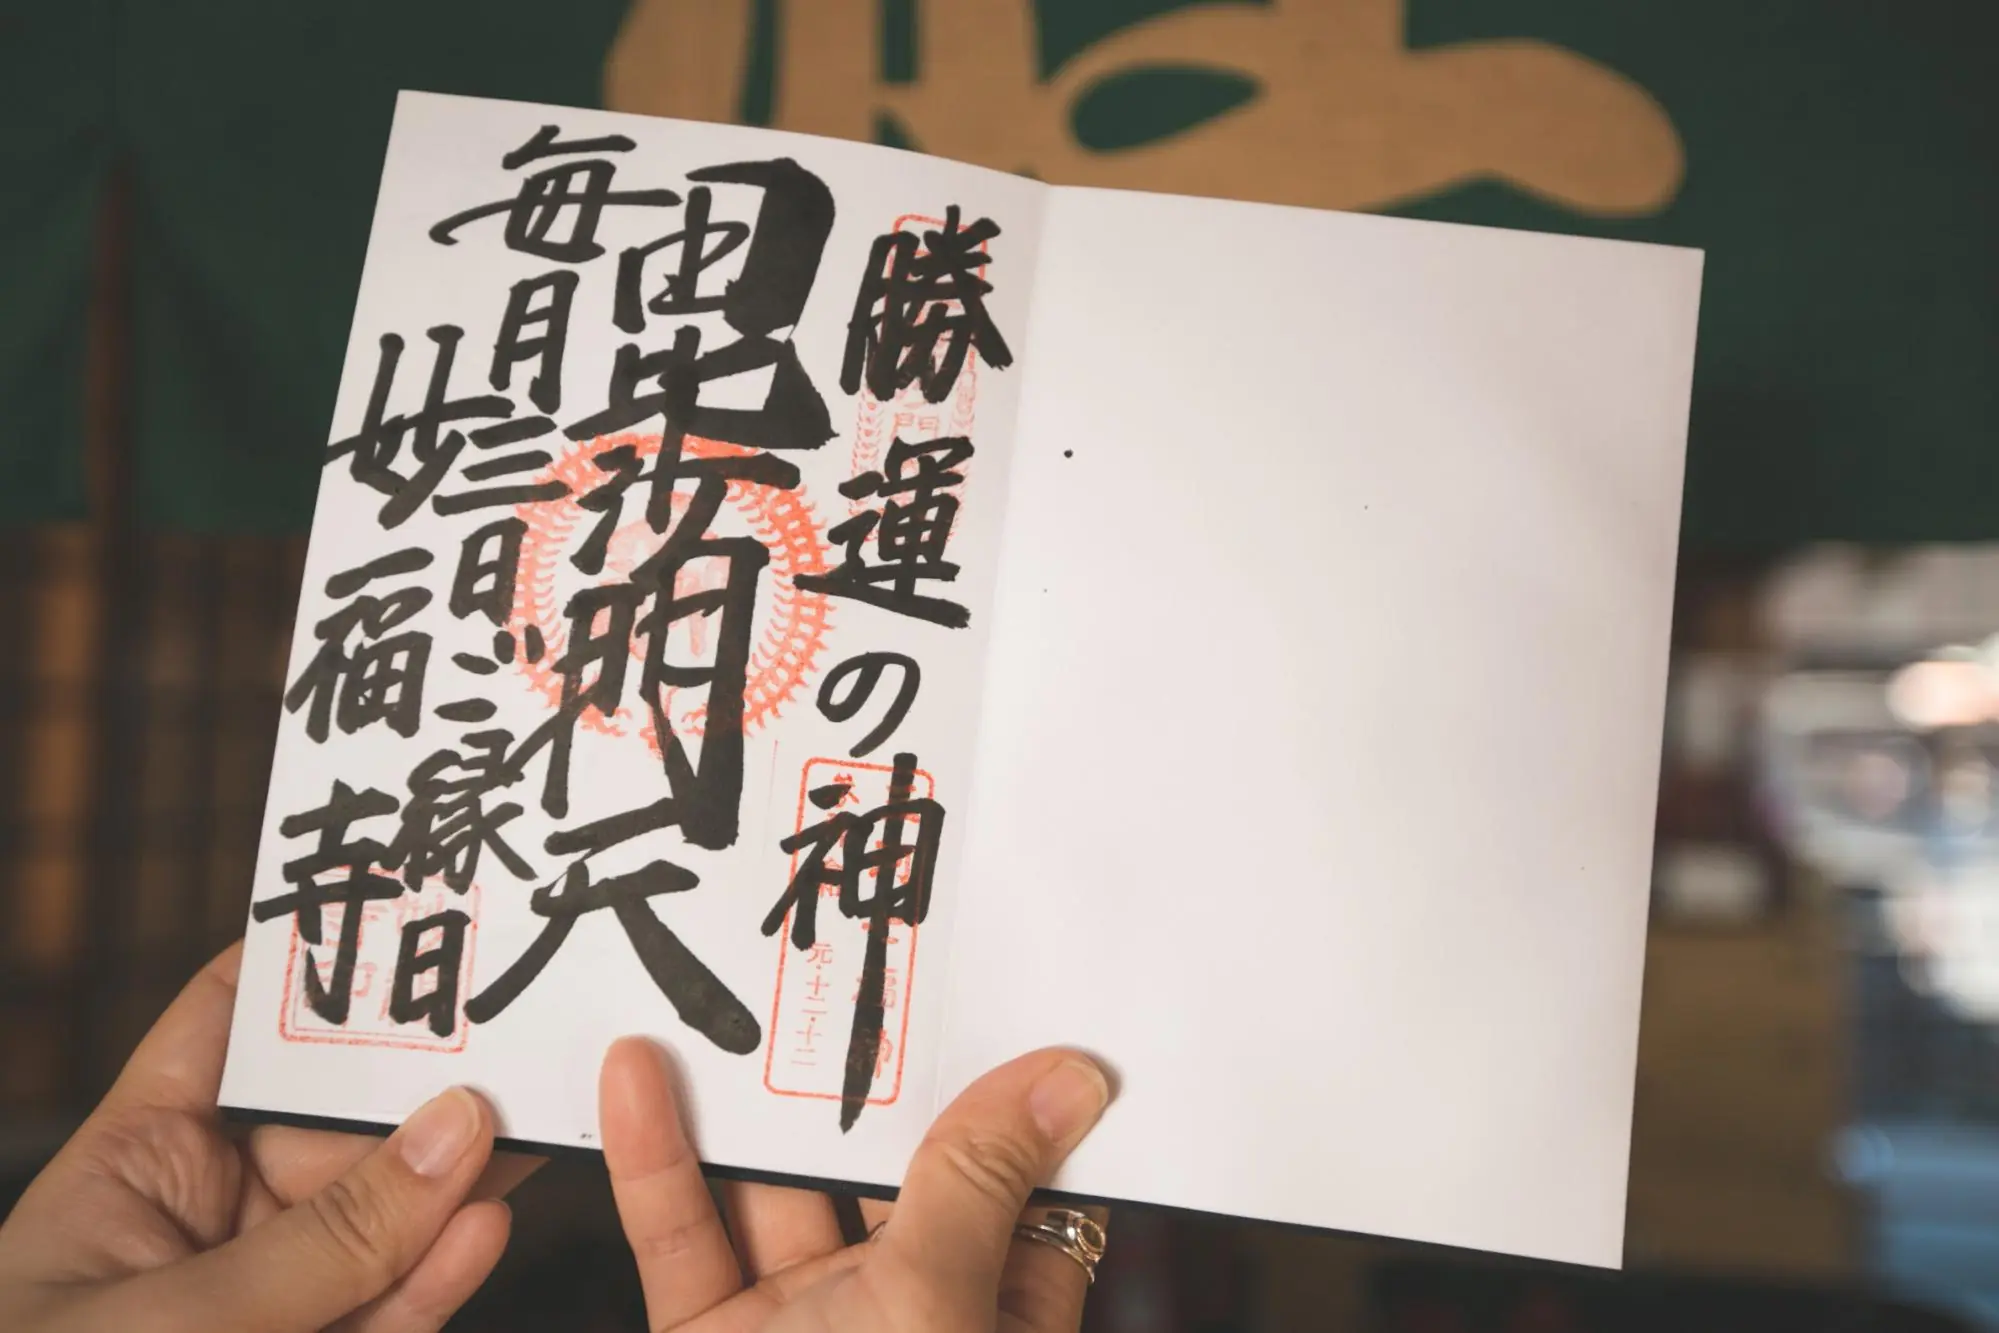 勝運の神
毘沙門天
毎月三日ご縁日
妙福寺
元・十二・十二